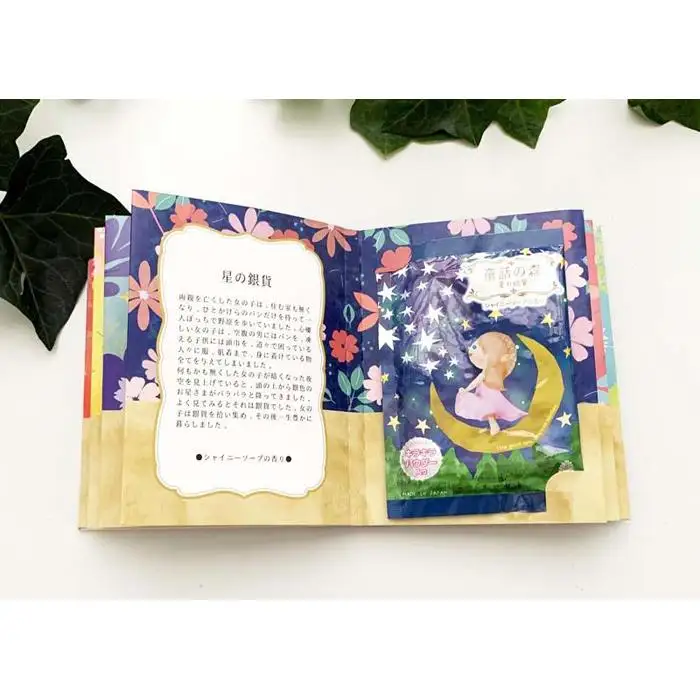 星の銀貨
両親を亡くした女の子は、住む家も無く
なり、ひとかけらのパンだけを持って一
人ぼっちで野原を歩いていました。心優
しい女の子は、空腹の男にはパンを、凍
える子供には頭巾を、道々で困っている
人々に服、肌着まで、身に着けている物
全てを与えてしまいました。
何もかも無くした女の子が暗くなった夜
空を見上げていると、頭の上から銀色の
お星さまがパラパラと降ってきました。
よく見てみるとそれは銀貨でした。女の
子は銀貨を拾い集め、その後一生豊かに
暮らしました。
●シャイニーソープの香り●
童話の森
シャイニーソープの香り
キラキラ
パウダー
入り
MADE IN JAPAN